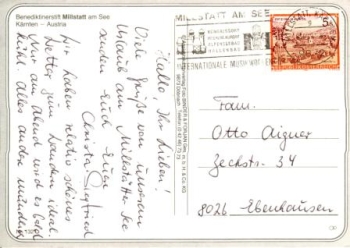 Benediktinerstift Millstatt am See
Kärnten – Austria
Hallo, Ihr Lieben!
Viele Grüße von unserem
Urlaub am Millstätter See
senden Euch Euren
Christa Siegfried
Wir haben relativ schönes
Wetter zum Wandern ideal.
Nur am Abend wird es bald
kühl. Alles andere wunderbar
MILLSTATT AM SEE
INTERNATIONALE MUSIKWOCHEN
5
Fam.
Otto Aigner
Zechstr. 34
8026 Ebenhausen